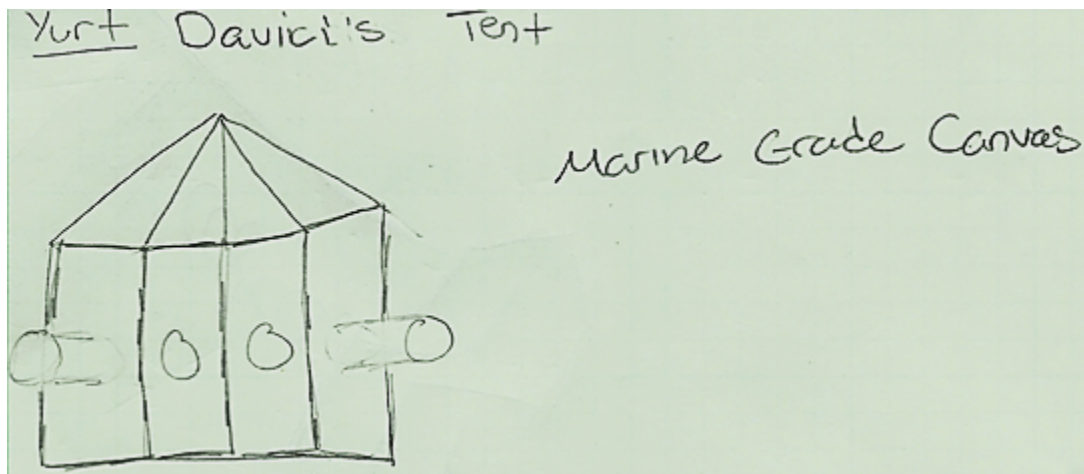 Yurt Davici's Tent
Marine Grade Canvas